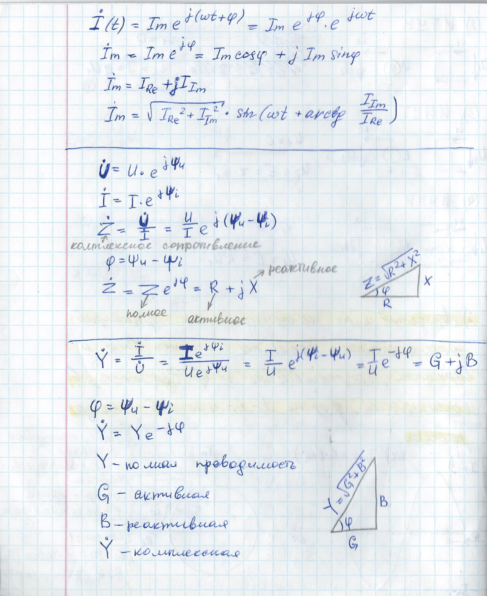 İ(t) = Im e^{j(ωt+φ)} = Im e^{jφ} · e^{jωt}
İm = Im e^{jφ} = Im cosφ + j Im sinφ
İm = I_{Re} + jI_{Im}
İm = √(I_{Re}² + I_{Im}²) · sin(ωt + arctg I_{Im}/I_{Re})
U̇ = U · e^{jΨu}
İ = I · e^{jΨi}
Ż = U̇/İ = U/I e^{j(Ψu-Ψi)}
комплексное сопротивление
φ = Ψu - Ψi
реактивное
Ż = Z e^{jφ} = R + jX
полное
активное
Z = √(R²+X²)
X
φ
R
Ẏ = İ/U̇ = I e^{jΨi}/U e^{jΨu} = I/U e^{j(Ψi-Ψu)} = I/U e^{-jφ} = G + jB
φ = Ψu - Ψi
Ẏ = Y e^{-jφ}
Y - полная проводимость
G - активная
B - реактивная
Ẏ - комплексная
Y = √(G²+B²)
B
φ
G